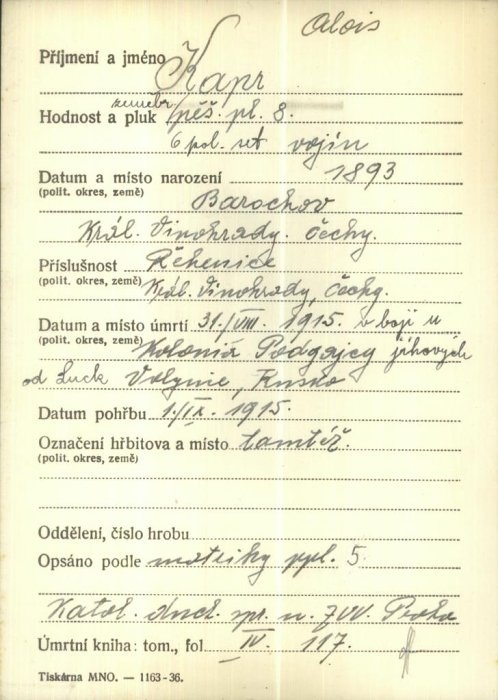 Alois
Příjmení a jméno Kapr
zeměbr.
Hodnost a pluk pěš. pl. 8.
6 pol. set. vojín
Datum a místo narození 1893
(polit. okres, země) Barochov
Král. Vinohrady. Čechy.
Příslušnost Řehenice
(polit. okres, země) Král. Vinohrady, Čechy.
Datum a místo úmrtí 31./VIII. 1915. v boji u
(polit. okres, země) Kolonia Podgajcy jihových.
od Luck Volynie, Rusko
Datum pohřbu 1./IX. 1915.
Označení hřbitova a místo tamtéž.
(polit. okres, země)
Oddělení, číslo hrobu
Opsáno podle matriky ppl. 5.
Katol. duch. spr. u. ZVV. Praha
Úmrtní kniha: tom., fol. IV. 117.
Tiskárna MNO. — 1163-36.